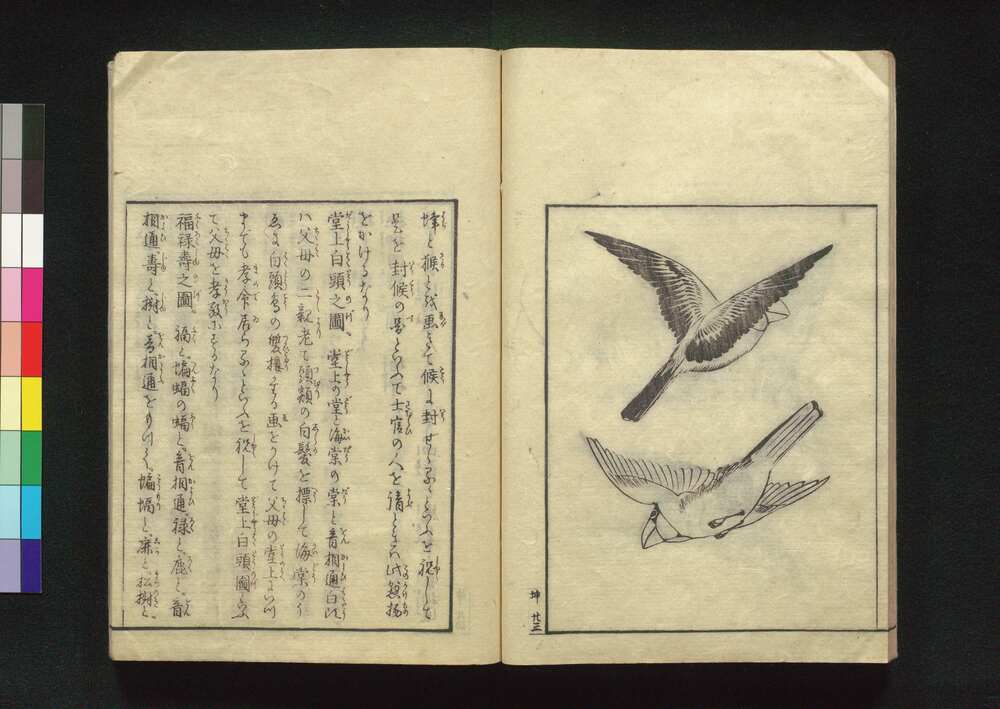 坤 廿三
蜂と猴とを画きて候に封せらるゝといふを祝して
是を封候の図といふて士官の人を請ときは此幾揚
をかけるなり
堂上白頭之圖 堂上の堂と海棠の棠と音相通白頭
ハ父母の二親老て頭類の白髪を標して海棠の
ゑに白頭鳥の雙棲する画をかけて父母の堂上にいつ
までも孝命居らるゝといふを祝して堂上白頭圖といふ
て父母を孝敬するなり
福禄壽之圖 福と蝙蝠の蝠と音相通禄と鹿と音
相通壽と樹と音相通をもつて蝙蝠と鹿と松樹と